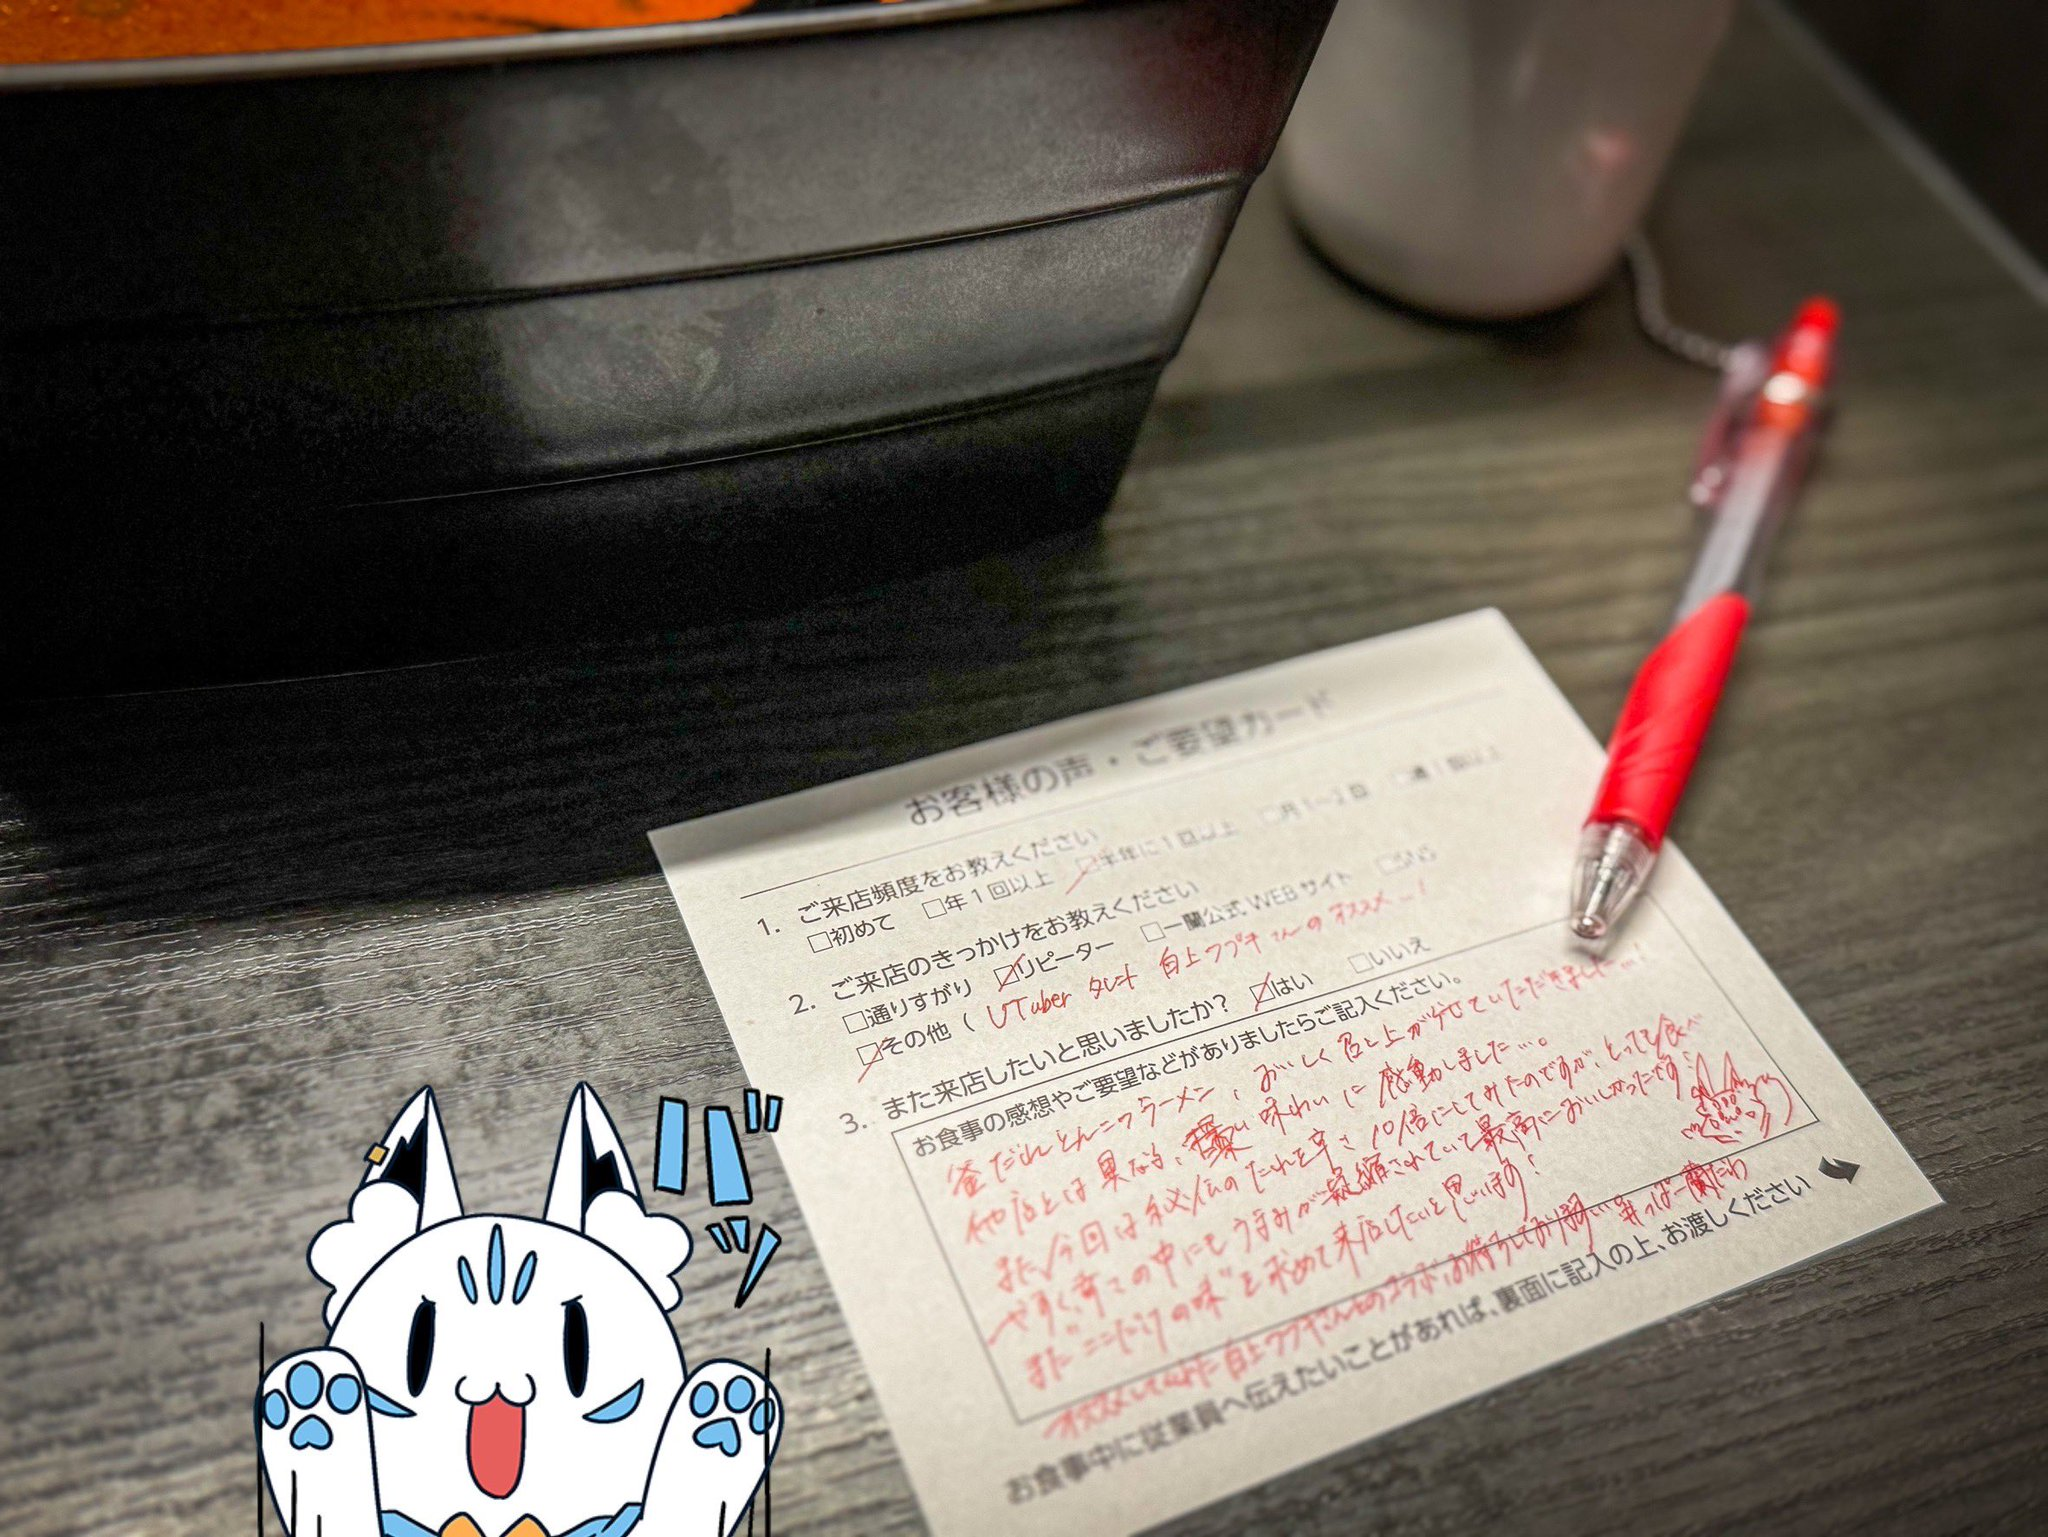 お客様の声・ご要望カード
1. ご来店頻度をお教えください
□初めて □年1回以上 □半年に1回以上 □月1〜2回 □週1回以上
2. ご来店のきっかけをお教えください
□通りすがり □リピーター □一蘭公式WEBサイト □SNS
□その他( VTuber タレント 白上フブキさんのオススメ…!
3. また来店したいと思いましたか? □はい □いいえ
お食事の感想やご要望などがありましたらご記入ください。
釜だれとんこつラーメン、おいしく召し上がらせていただきました…!
他店とは異なる、深い味わいに感動しました…。
また今回は秘伝のたれを辛さ10倍にしてみたのですが、とっても食べ
やすく、辛さの中にもうまみが凝縮されていて最高においしかったです
また"ここだけの味"を求めて来店したいと思います!
オススメして 白上フブキさんとのコラボ、お待ちしております
お食事中に従業員へ伝えたいことがあれば、裏面に記入の上、お渡しください
バッ